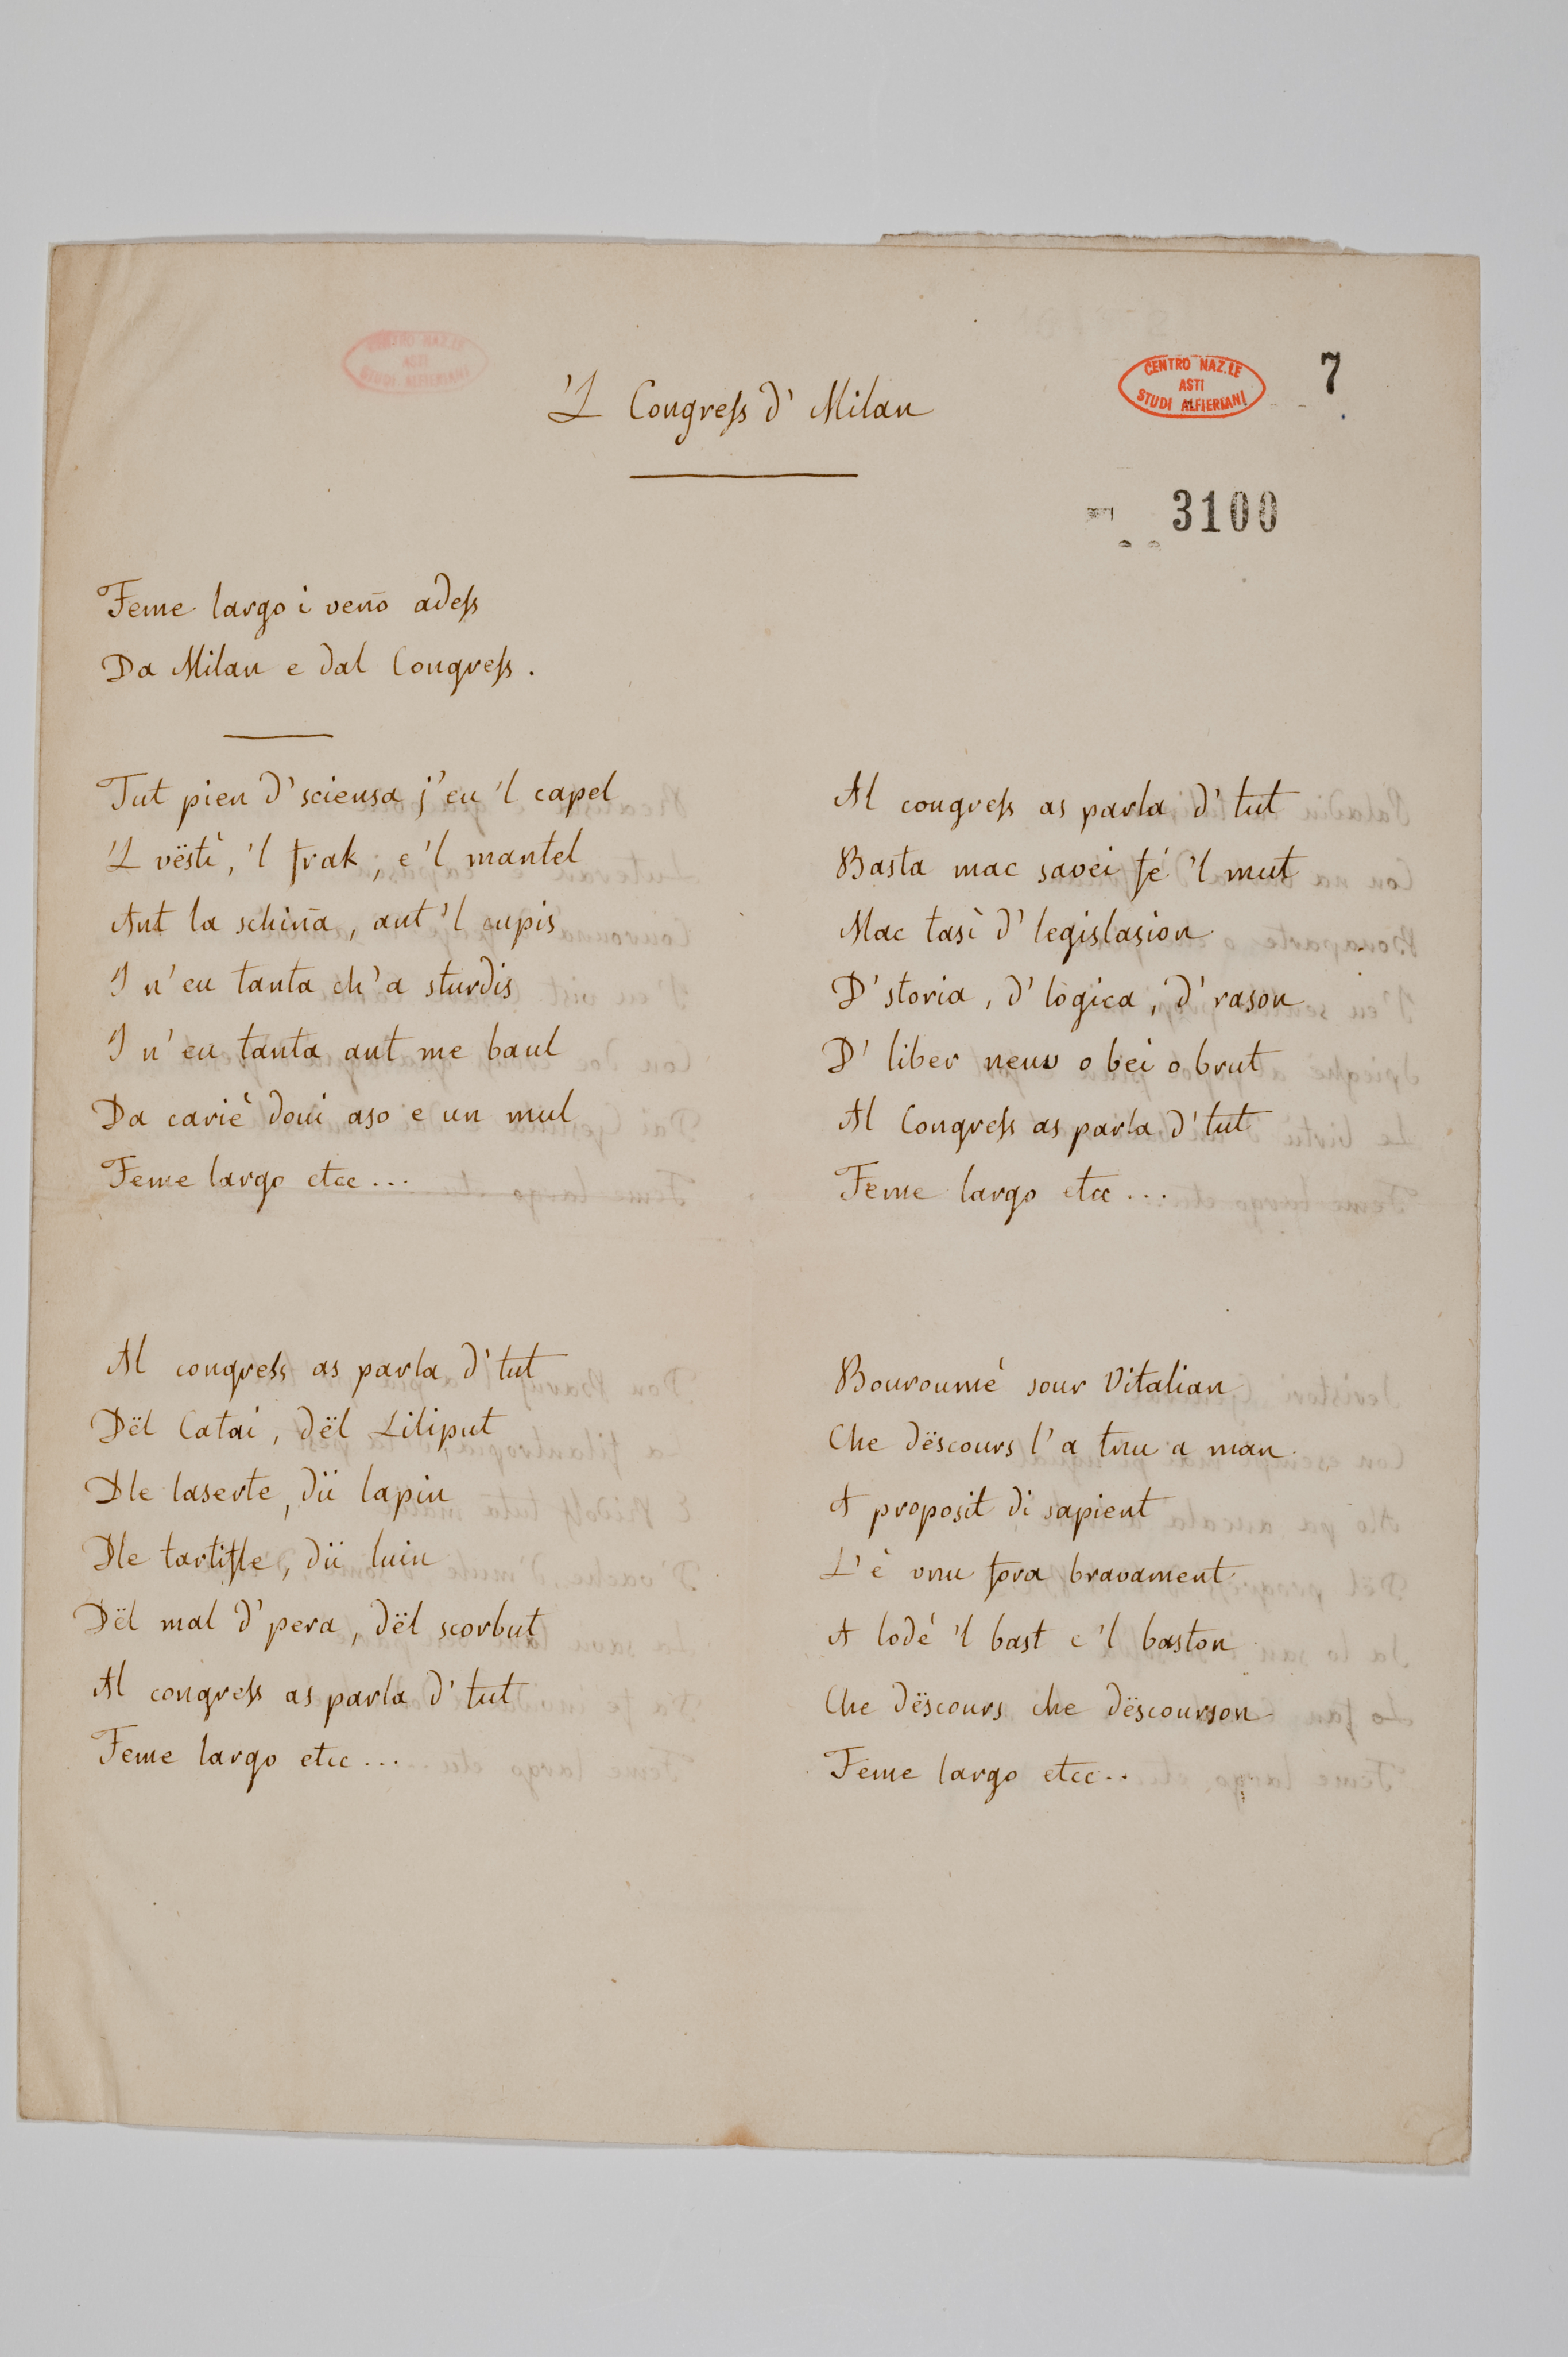 'L Congress d' Milan
CENTRO NAZ.LE
ASTI
STUDI ALFIERIANI
7
3100
Feme largo i veño adess
Da Milan e dal Congress.
Tut pien d'sciensa j'eu 'l capel
'L vëstì, 'l frak, e 'l mantel
Ant la schiña, ant 'l cupis
I n'eu tanta ch'a sturdis
I n'eu tanta ant me baul
Da cariè doui aso e un mul
Feme largo etcc...
Al congress as parla d' tut
Dël Catai, dël Liliput
Dle laserte, dü lapin
Dle tartifle, dü luin
Dël mal d'pera, dël scorbut
Al congress as parla d' tut
Feme largo etcc...
Al congress as parla d' tut
Basta mac savei fé 'l mut
Mac tasì d' legislasion
D'storia, d' lògica, d' rason
D' liber neuv o bei o brut
Al Congress as parla d' tut
Feme largo etcc...
Bouroumé sour Vitalian
Che dëscours l'a tnu a man
A proposit di sapient
L'è vnu fora bravament
A lodé 'l bast e 'l baston
Che dëscours che dëscourson
Feme largo etcc..